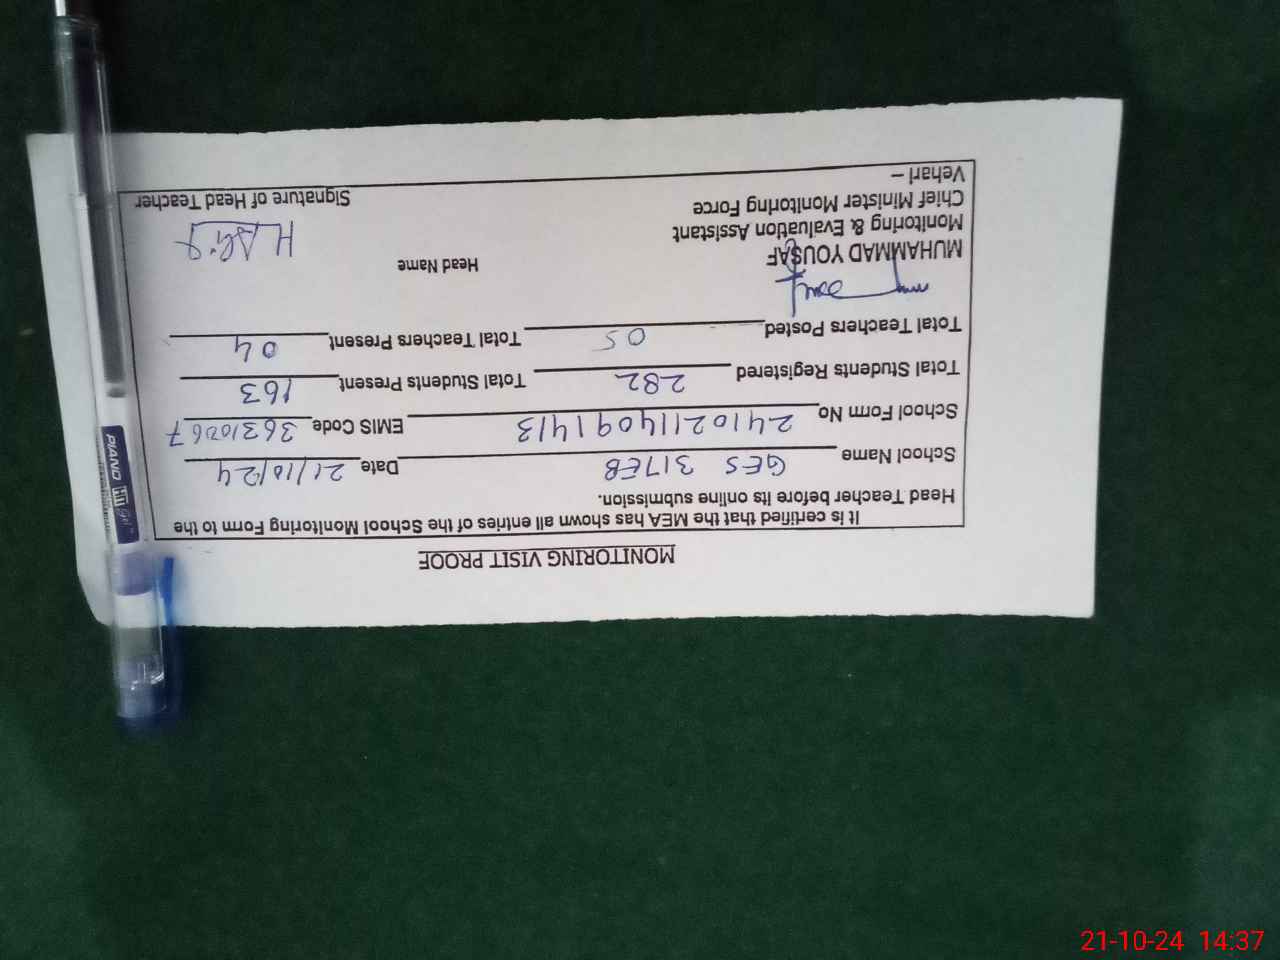 MONITORING VISIT PROOF
It is certified that the MEA has shown all entries of the School Monitoring Form to the
Head Teacher before its online submission.
School Name GES 317EB Date 21/10/24
School Form No 2410211409 1413 EMIS Code 36310067
Total Students Registered 282 Total Students Present 163
Total Teachers Posted 05 Total Teachers Present 04
MUHAMMAD YOUSAF Head Name
Monitoring & Evaluation Assistant
Chief Minister Monitoring Force
Vehari – Signature of Head Teacher
PIANO Gel
21-10-24 14:37